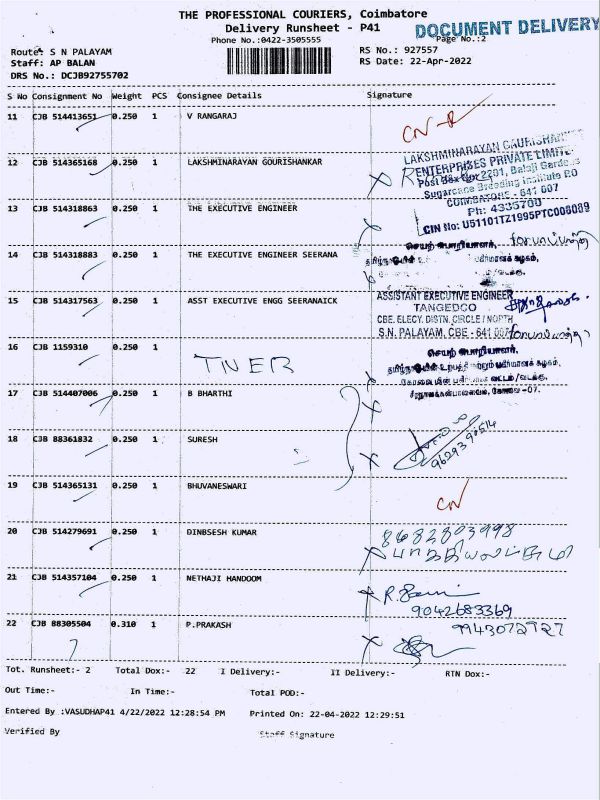 THE PROFESSIONAL COURIERS, Coimbatore
Delivery Runsheet - P41
DOCUMENT DELIVERY
Phone No.:0422-3505555
Page No.:2
Route: S N PALAYAM
RS No.: 927557
Staff: AP BALAN
RS Date: 22-Apr-2022
DRS No.: DCJB92755702
S No Consignment No Weight PCS Consignee Details Signature
11 CJB 514413651 0.250 1 V RANGARAJ
CN-R
12 CJB 514365168 0.250 1 LAKSHMINARAYAN GOURISHANKAR
LAKSHMINARAYAN GAURISHANKER
ENTERPRISES PRIVATE LIMITED
Post Box No: 2201, Balaji Gardens
Sugarcane Breeding Institute P.O
COIMBATORE - 641 007
Ph: 4335700
CIN No: U51101TZ1995PTC006089
13 CJB 514318863 0.250 1 THE EXECUTIVE ENGINEER
14 CJB 514318883 0.250 1 THE EXECUTIVE ENGINEER SEERANA
செயற் பொறியாளர்,
15 CJB 514317563 0.250 1 ASST EXECUTIVE ENGG SEERANAICK
ASSISTANT EXECUTIVE ENGINEER
TANGEDCO
CBE. ELECY. DISTN. CIRCLE / NORTH
S.N. PALAYAM, CBE - 641 007
16 CJB 1159310 0.250 1
TNER
செயற் பொறியாளர்,
17 CJB 514407006 0.250 1 B BHARTHI
18 CJB 88361832 0.250 1 SURESH
9629390514
19 CJB 514365131 0.250 1 BHUVANESWARI
CN
20 CJB 514279691 0.250 1 DINBSESH KUMAR
8682803998
21 CJB 514357104 0.250 1 NETHAJI HANDOOM
9042683369
22 CJB 88305504 0.310 1 P.PRAKASH
9943072927
Tot. Runsheet:- 2 Total Dox:- 22 I Delivery:- II Delivery:- RTN Dox:-
Out Time:- In Time:- Total POD:-
Entered By :VASUDHAP41 4/22/2022 12:28:54 PM Printed On: 22-04-2022 12:29:51
Verified By Staff Signature